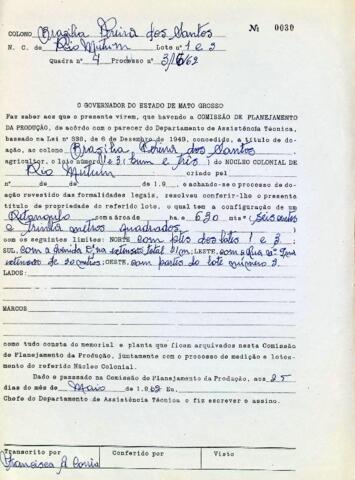 Nº 0030
COLONO Brasilia Pereira dos Santos
N. C. de Rio Mutum Lote nº 1 e 3
Quadra nº 4 Processo nº 3/16/62
O GOVERNADOR DO ESTADO DE MATO GROSSO
Faz saber aos que o presente virem, que havendo a COMISSÃO DE PLANEJAMENTO
DA PRODUÇÃO, de acôrdo com o parecer do Departamento de Assistência Técnica,
baseado na Lei nº 336, de 6 de Dezembro de 1949, concedido, a título de doa-
ção, ao colono Brasilia Pereira dos Santos
agricultor, o lote número 1 e 3 (um e três) do NÚCLEO COLONIAL DE
Rio Mutum criado pel
nº de de de 19 e achando-se o processo de do-
ação revestido das formalidades legais, resolveu conferir-lhe o presente
título de propriedade do referido lote, o qual tem a configuração de um
Retangulo com a área de ha. e 630 mts² (seiscentos
e trinta metros quadrados)
com os seguintes limites: NORTE com partes dos lotes 1 e 3;
SUL, com a Avenida E, na extensão total 21m; LESTE, com a Rua nº na
extensão de 30 metros; OESTE, com partes do lote numero 2.
LADOS:
MARCOS
como tudo consta do memorial e planta que ficam arquivados nesta Comissão
de Planejamento da Produção, juntamente com o processo de medição e lotea-
mento do referido Núcleo Colonial.
Dado e passado na Comissão de Planejamento da Produção, aos 25
dias do mês de Maio de 1.962 Eu,
Chefe do Departamento de Assistência Técnica o fiz escrever e assino.
Transcrito por Conferido por Visto
Francisca A Corrêa